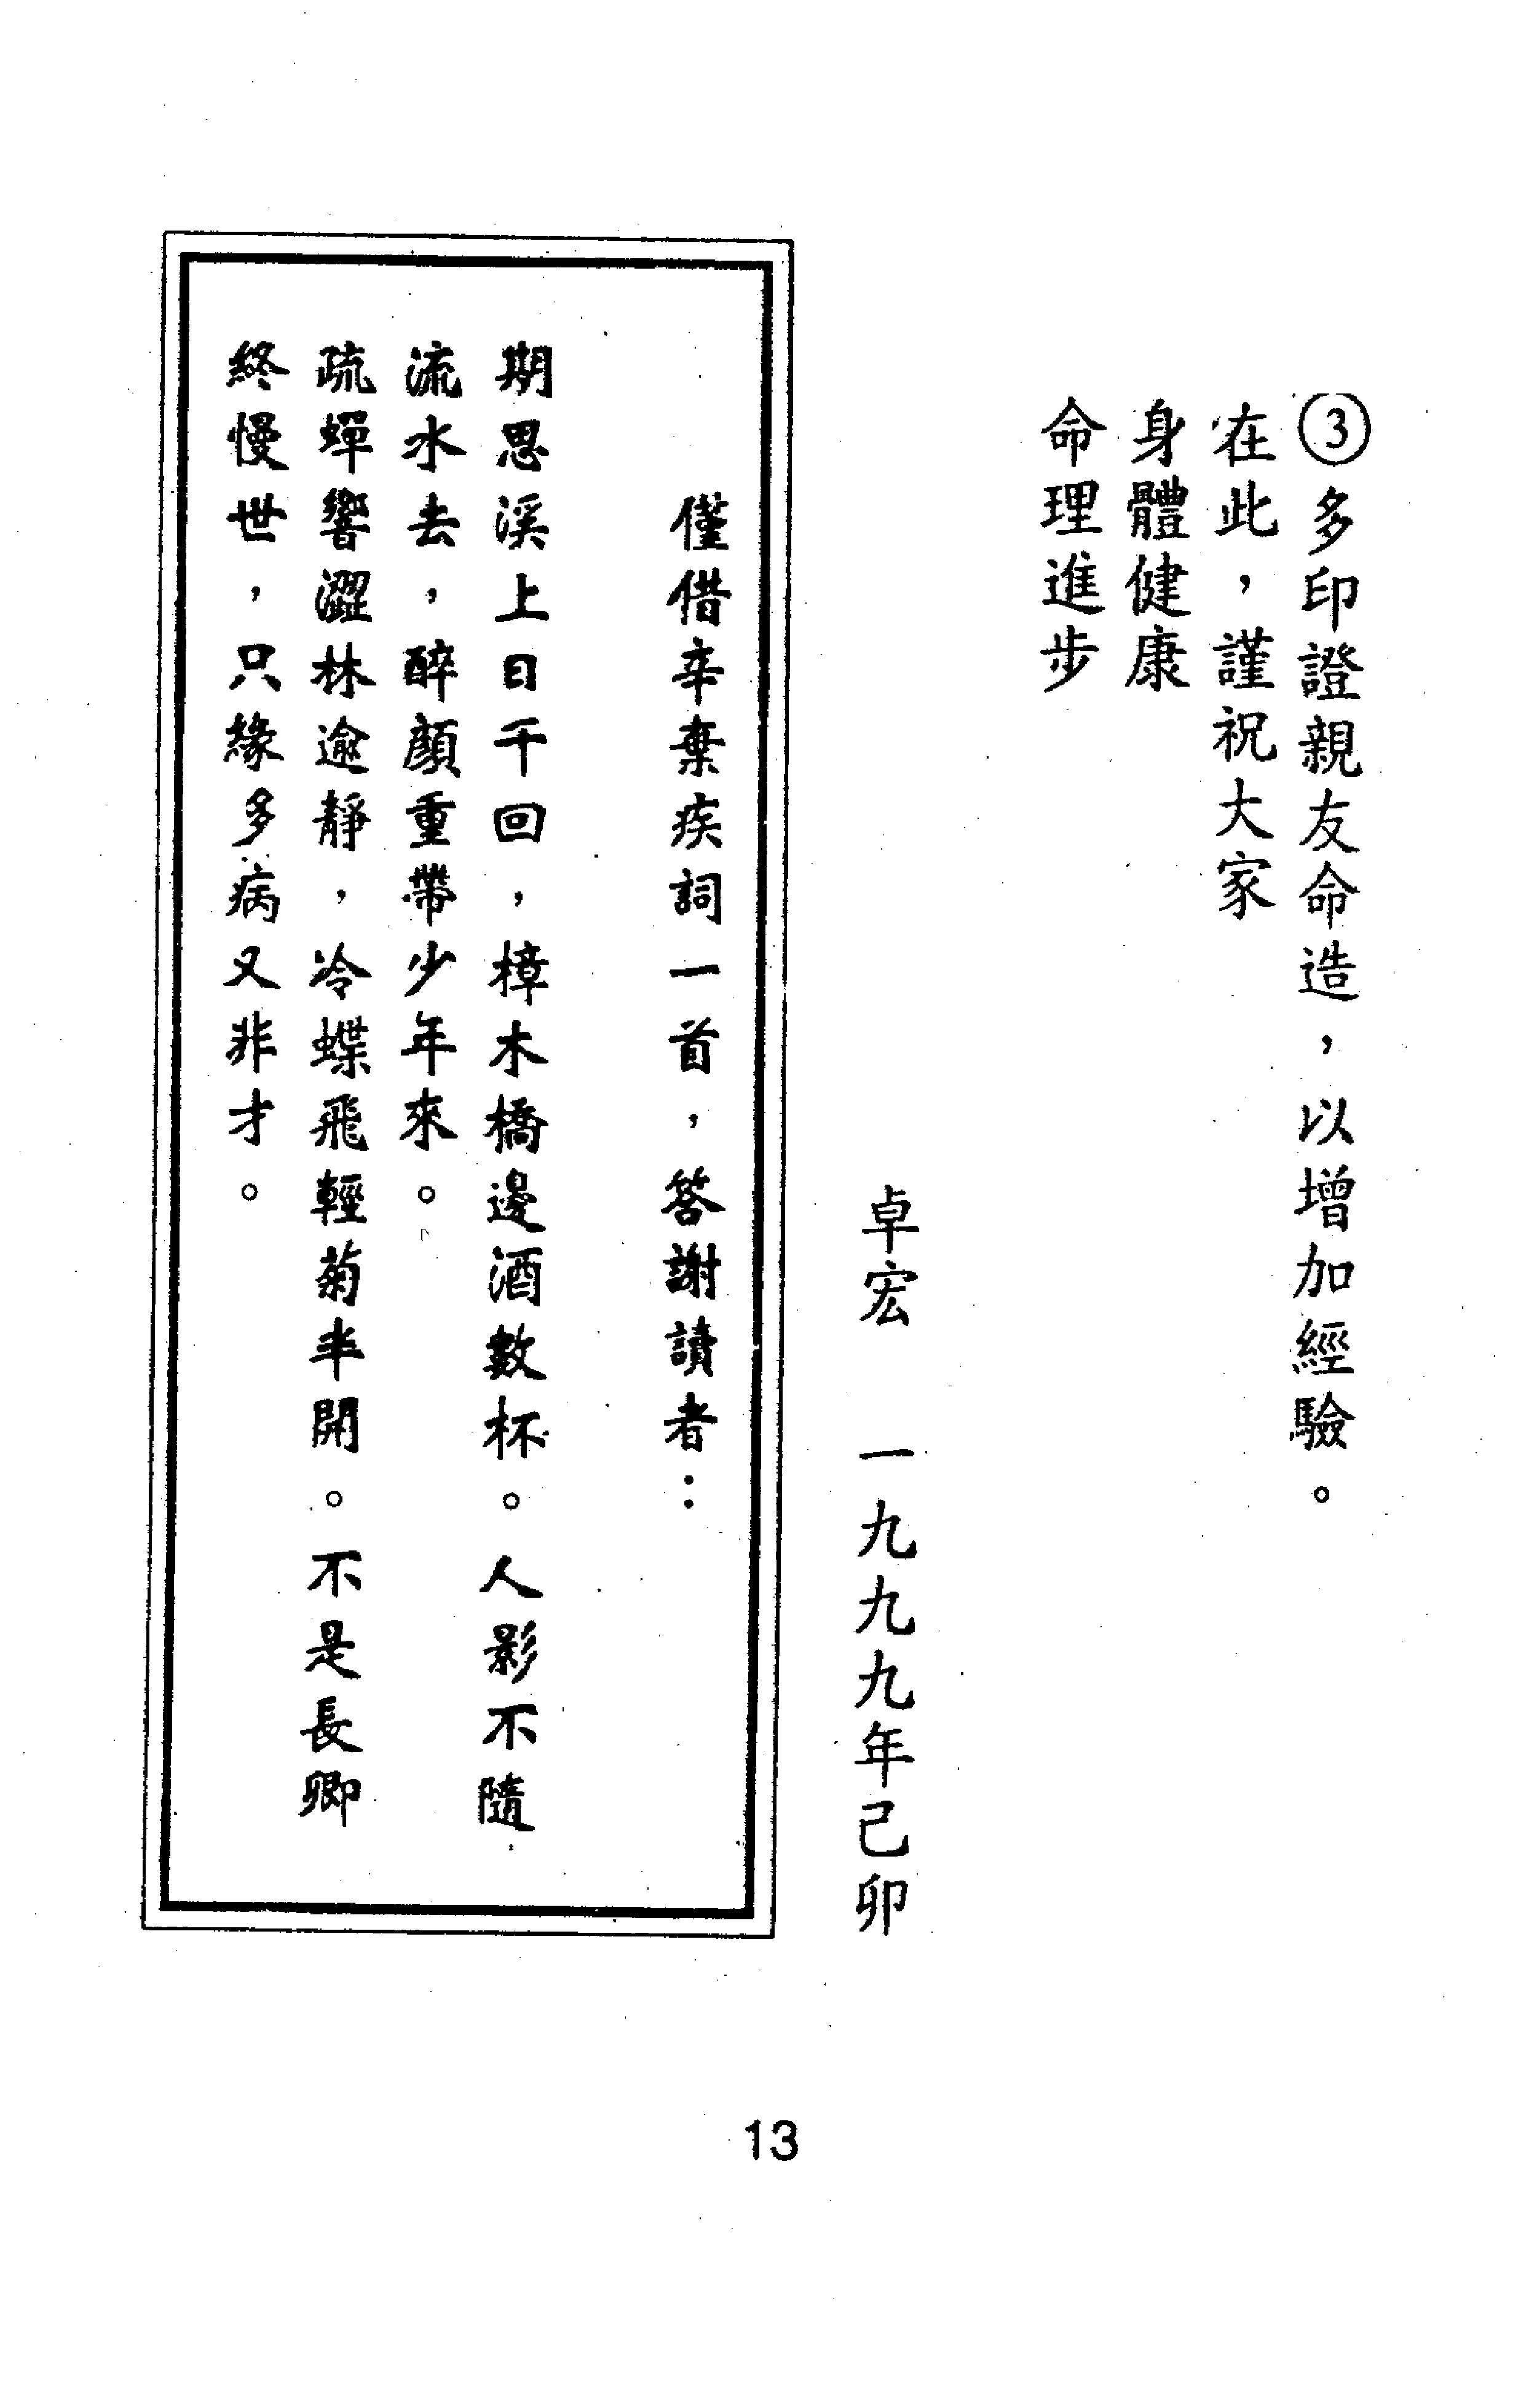 ③多印證親友命造，以增加經驗。
在此，謹祝大家
身體健康
命理進步
卓宏　一九九九年己卯
僅借辛棄疾詞一首，答謝讀者：
期思溪上日千回，樟木橋邊酒數杯。人影不隨
流水去，醉顏重帶少年來。
疏蟬響澀林逾靜，冷蝶飛輕菊半開。不是長卿
終慢世，只緣多病又非才。
13